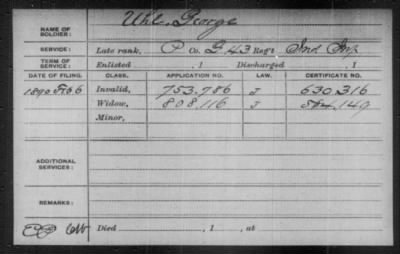 NAME OF SOLDIER: Uhl, George
SERVICE: Late rank, P Co. G, 43 Reg't Ind Inf
TERM OF SERVICE: Enlisted , 1 Discharged , 1
DATE OF FILING. CLASS. APPLICATION NO. LAW. CERTIFICATE NO.
1890 Invalid, 753.786 J 630 316
Widow, 808,116 J 584,149
Minor,
ADDITIONAL SERVICES:
REMARKS:
Died , 1 , at